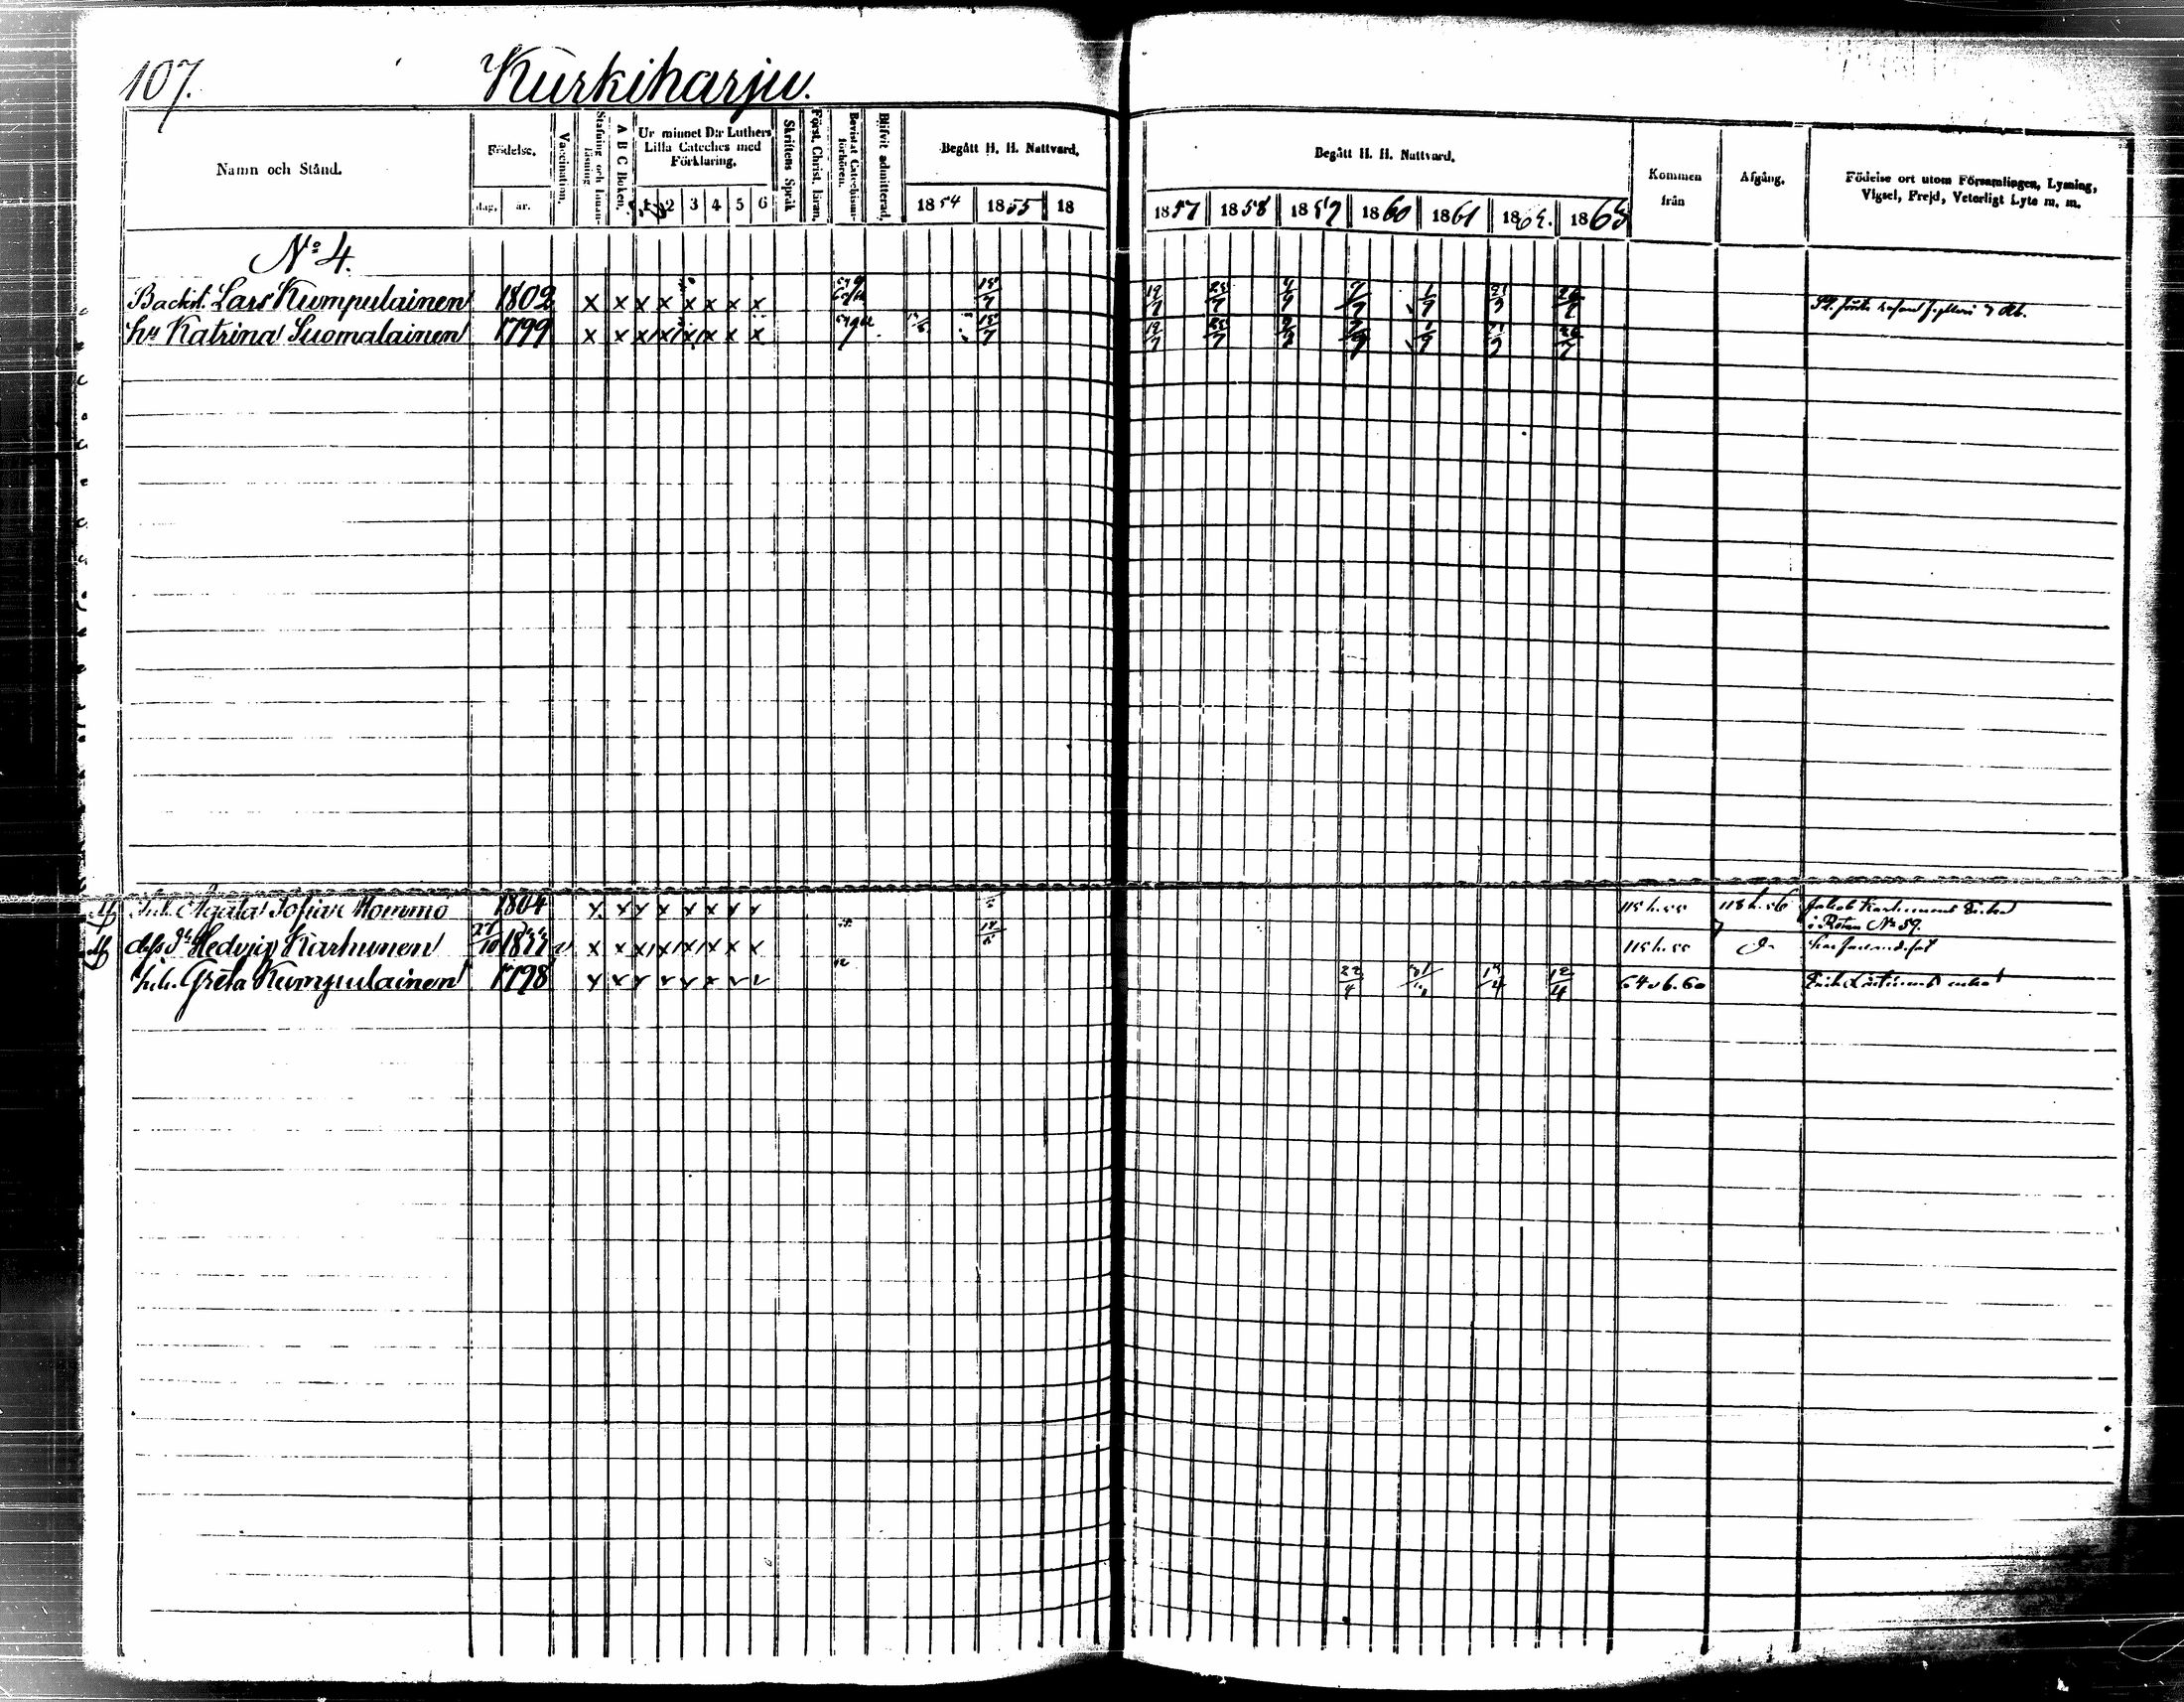 107. Kurkiharju.
Namn och Stånd. Födelse. dag. år. Vaccination. Stafning och Innanläsning A B C Boken. Ur minnet D:r Luthers Lilla Cateches med Förklaring. 1 2 3 4 5 6 Skriftens Språk Först. Christ. läran. Bevistat Catechismi-förhören. Blifvit admitterad. Begått H. H. Nattvard. 1854 1855 18
Begått H. H. Nattvard. 1857 1858 1859 1860 1861 1862. 1863 Kommen från Afgång. Födelse ort utom Församlingen, Lysning, Vigsel, Frejd, Veterligt Lyte m. m.
No 4.
Backst. Lars Kumpulainen 1802 x x x x x x x x 15/7 19/7 25/7 7/9 1/9 21/9 26/7
hu Katrina Suomalainen 1799 x x x x x x x x 15/7 19/7 25/7 7/9 1/9 21/9 26/7
Inh. Agata Sofia Mommo 1804 x x x x x x x x 115 h. 55 118 h. 56 Jakob Karhunens Enka
i Roten No 59.
dess dr Hedvig Karhunen 27/10 x x x x x x x x 18/6 115 h. 55
Inh. Greta Kumpulainen 1798 x x x x x x x x 22/4 12/4 12/4 64 v 6. 60 enka